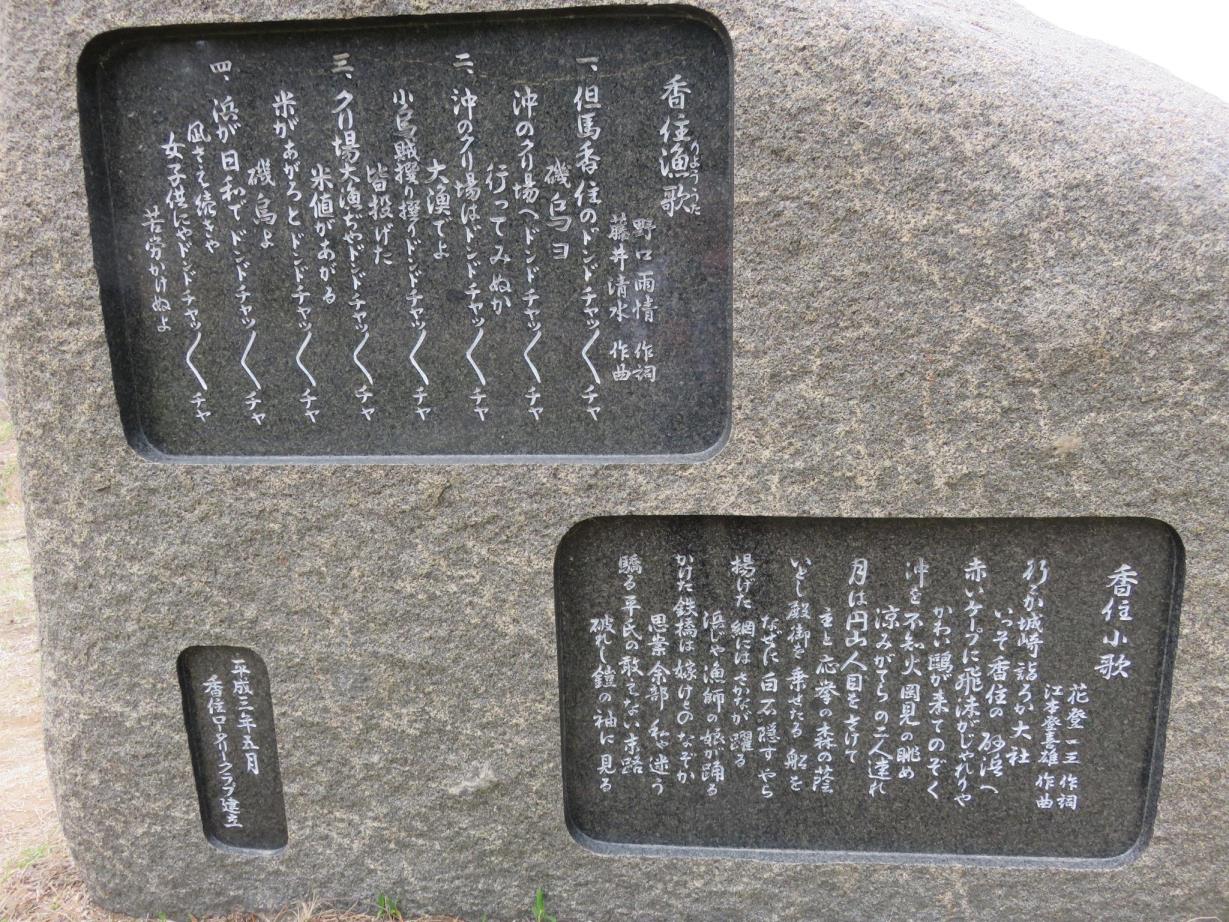 香住漁歌
りようった
野口雨情 作詞
藤井清水 作曲
一、但馬香住のドンドチャッ〱チャ
磯烏ヨ
沖のクリ場へドンドチャッ〱チャ
行ってみぬか
二、沖のクリ場はドンドチャッ〱チャ
大漁でよ
小烏賊撰り撰りドンドチャッ〱チャ
皆投げた
三、クリ場大漁ぢやドンドチャッ〱チャ
米値があがる
米があがろとドンドチャッ〱チャ
磯烏よ
四、浜が日和でドンドチャッ〱チャ
凪さえ続きゃ〱チャ
女子供にゃ
苦労かけぬよ
香住小歌
花登 一三 作詞
江本登喜雄 作曲
行こか城崎 詣ろか大社
いっそ香住の 砂浜へ
赤いケープに 飛沫がじゃれりゃ
かわい鴎が来てのぞく
沖を不知火 岡見の眺め
涼みがてらの二人連れ
月は円山 人目をさけて
主と応挙の森の蔭
いとし殿御を 乗せたる船を
なぜに白石 隠すやら
揚げた網には さかなが躍る
浜じゃ漁師の娘が踊る
かけた鉄橋は 嫁けとのなぞか
思案余部 私ゃ迷う
驕る平氏の 敢えない末路
破れし鎧の 袖に見る
平成三年五月
香住ロータリークラブ建立